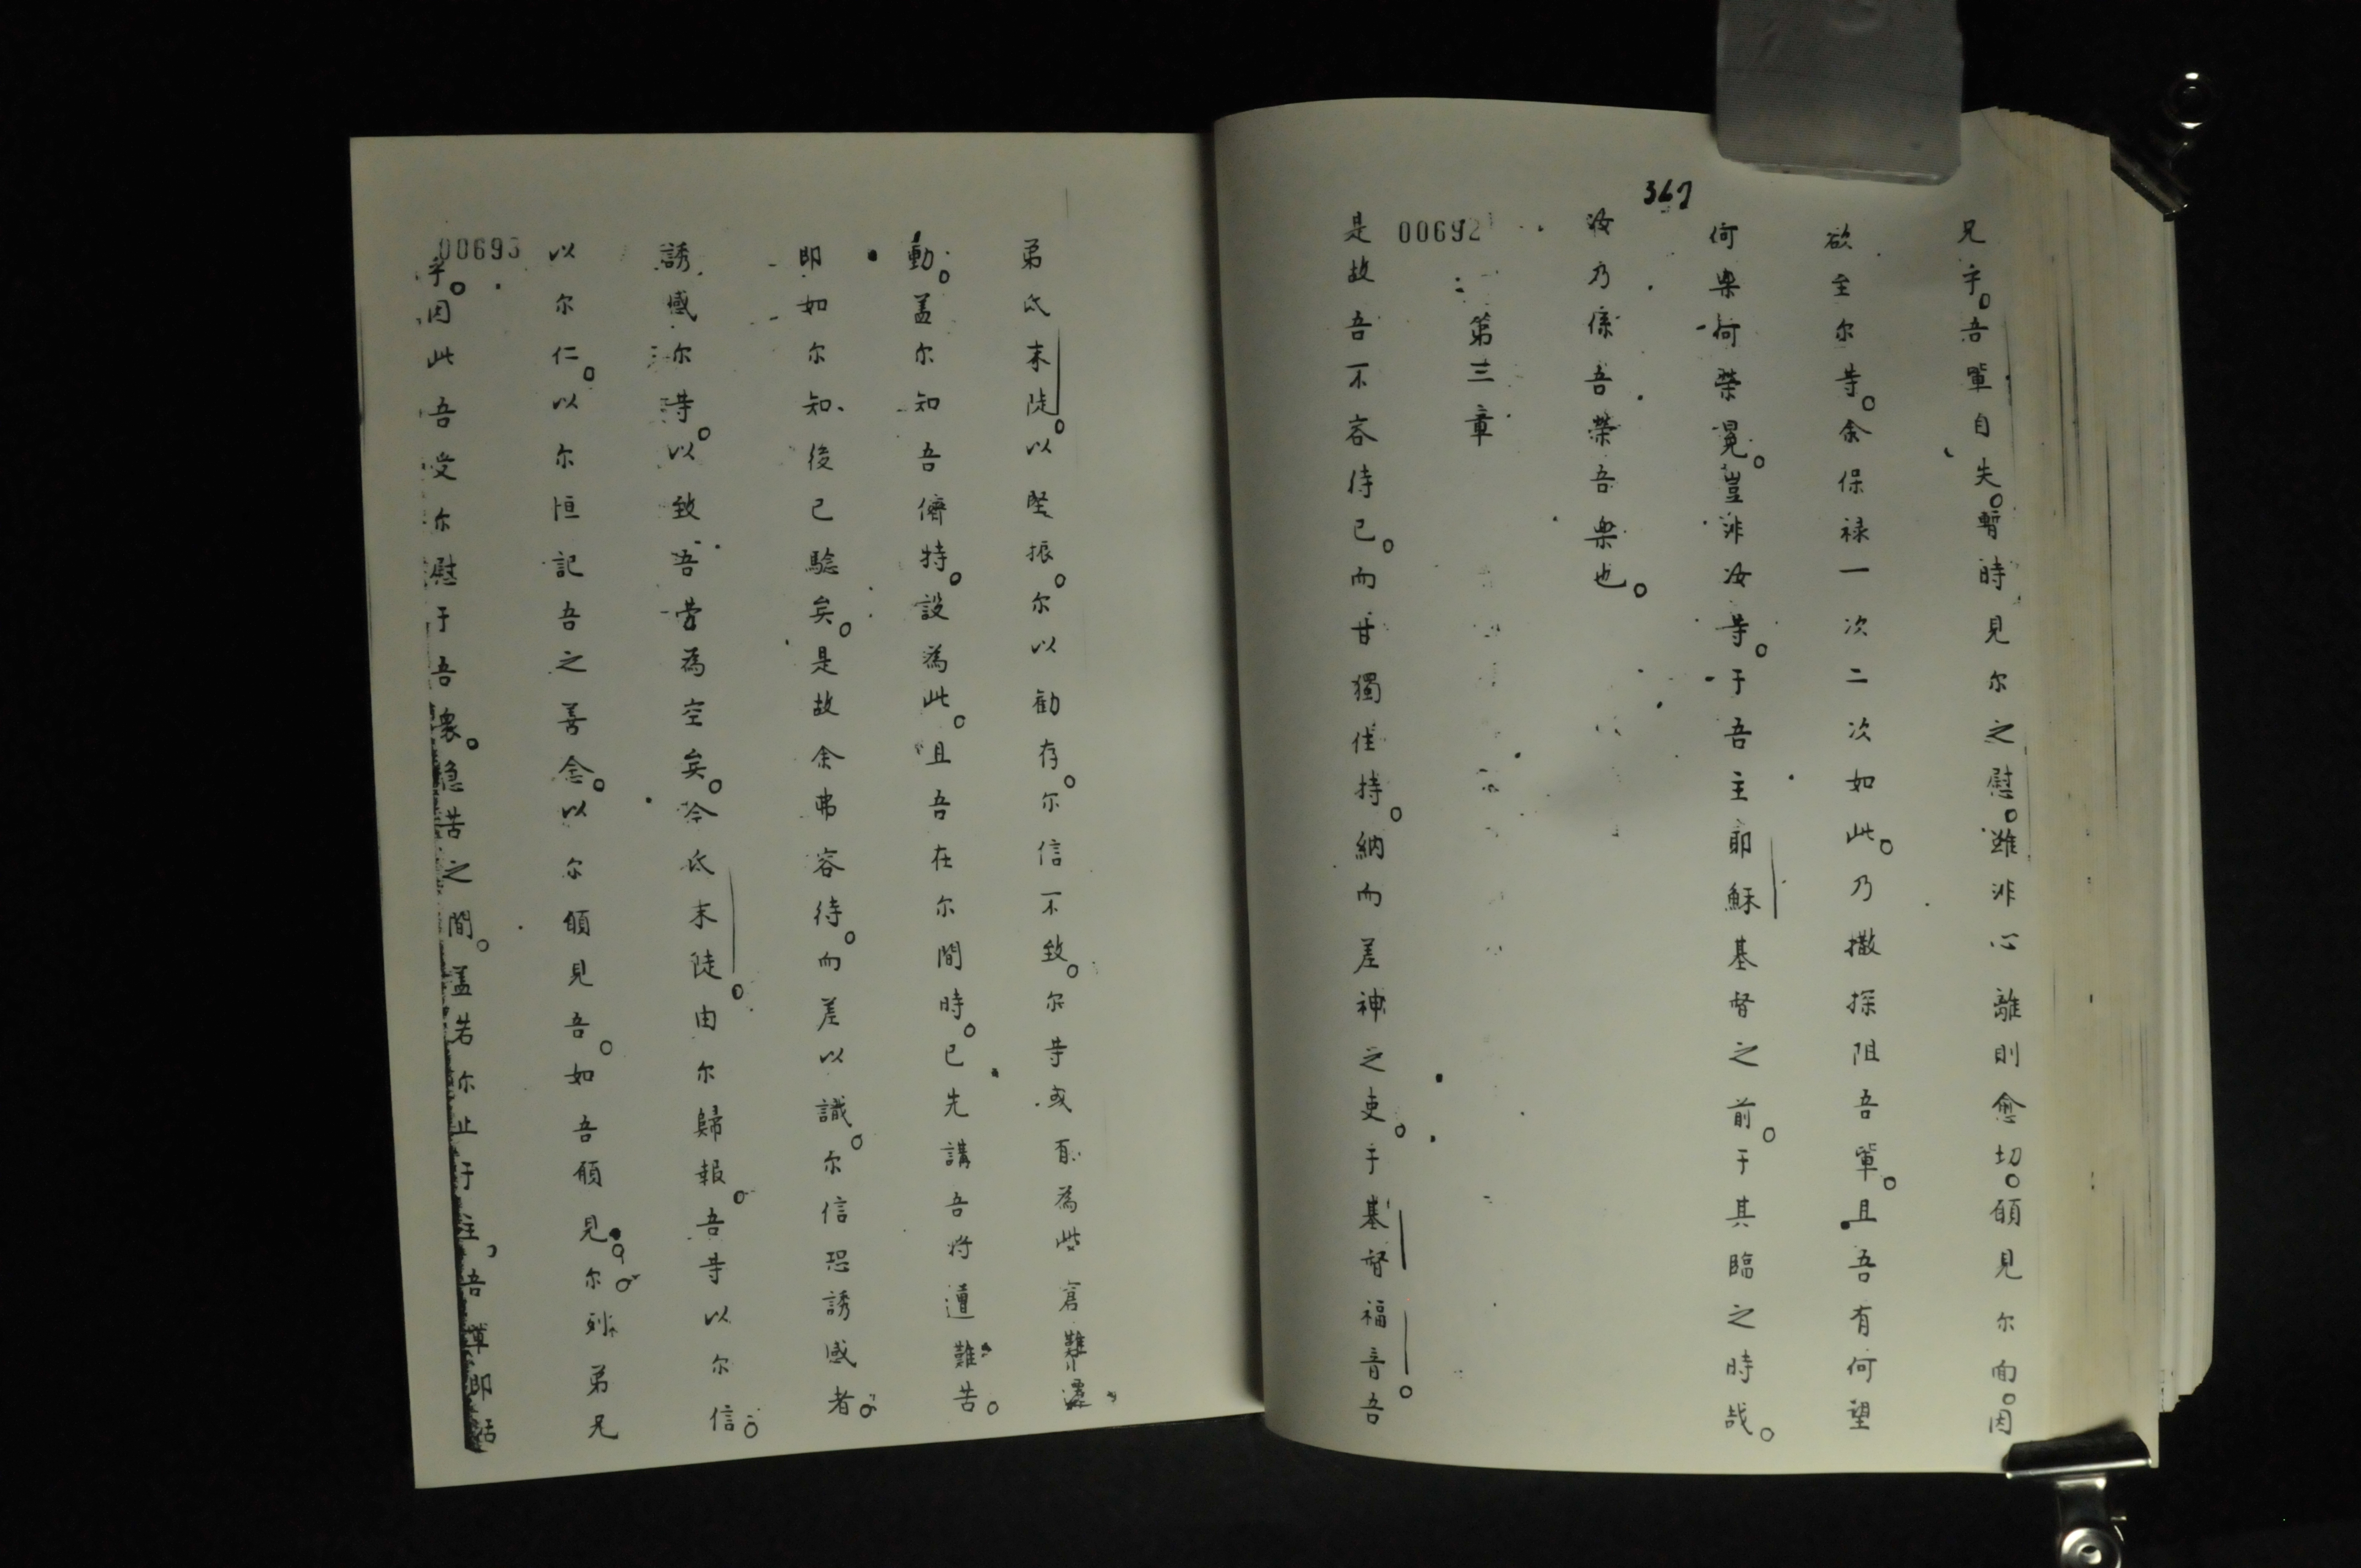 367
兄乎。吾輩自失。暫時見尔之慰。雖非心離則愈切。願見尔面。因
欲至尔等。余保禄一次二次如此。乃撒探阻吾輩。且吾有何望
何樂何榮冕。豈非汝等。于吾主耶穌基督之前。于其臨之時哉。
汝乃係吾榮吾樂也。
第三章
00692
是故吾不容待已。而甘獨住持。納而差神之吏。于基督福音。吾
弟氐末陡。以堅振。尔以勸存。尔信不致。尔等或有為些窘難
動。盖尔知吾儕特。設為此。且吾在尔間時。已先講吾将遭難苦。
即如尔知、後已驗矣。是故余弗容待。而差以識。尔信恐誘惑者。
誘惑尔等。以致吾劳為空矣。今氐末陡。由尔歸報。吾等以尔信。
以尔仁。以尔恒記吾之善念。以尔願見吾。如吾願見。尔列弟兄
00693
乎。因此吾受尔慰于吾衆。急苦之間。盖若尔止于主、吾輩即活